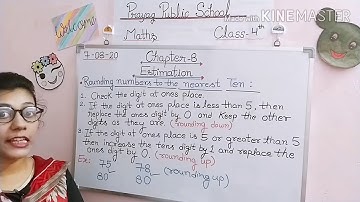 Made with KINEMASTER
Welcome
Prayag Public School
Maths Class-4th
7-08-20 Chapter-8
Estimation
Rounding numbers to the nearest Ten:
1. Check the digit at ones place.
2. If the digit at ones place is less than 5, then
replace the ones digit by 0 and keep the other
digits as they are. (rounding down)
3. If the digit at ones place is 5 or greater than 5
then increase the tens digit by 1 and replace the
ones digit by 0. (rounding up)
Ex: 75 78 (rounding up)
80 80